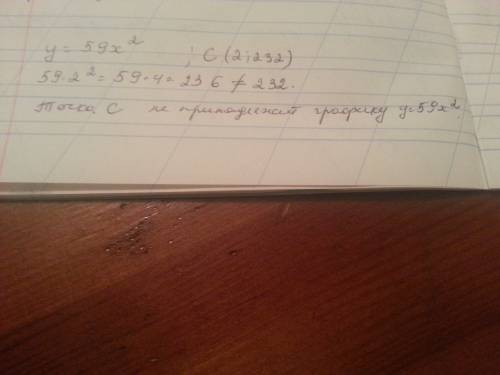 y = 59x² ; C (2; 232)
59·2² = 59·4 = 236 ≠ 232.
Точка C не принадлежит графику y=59x².